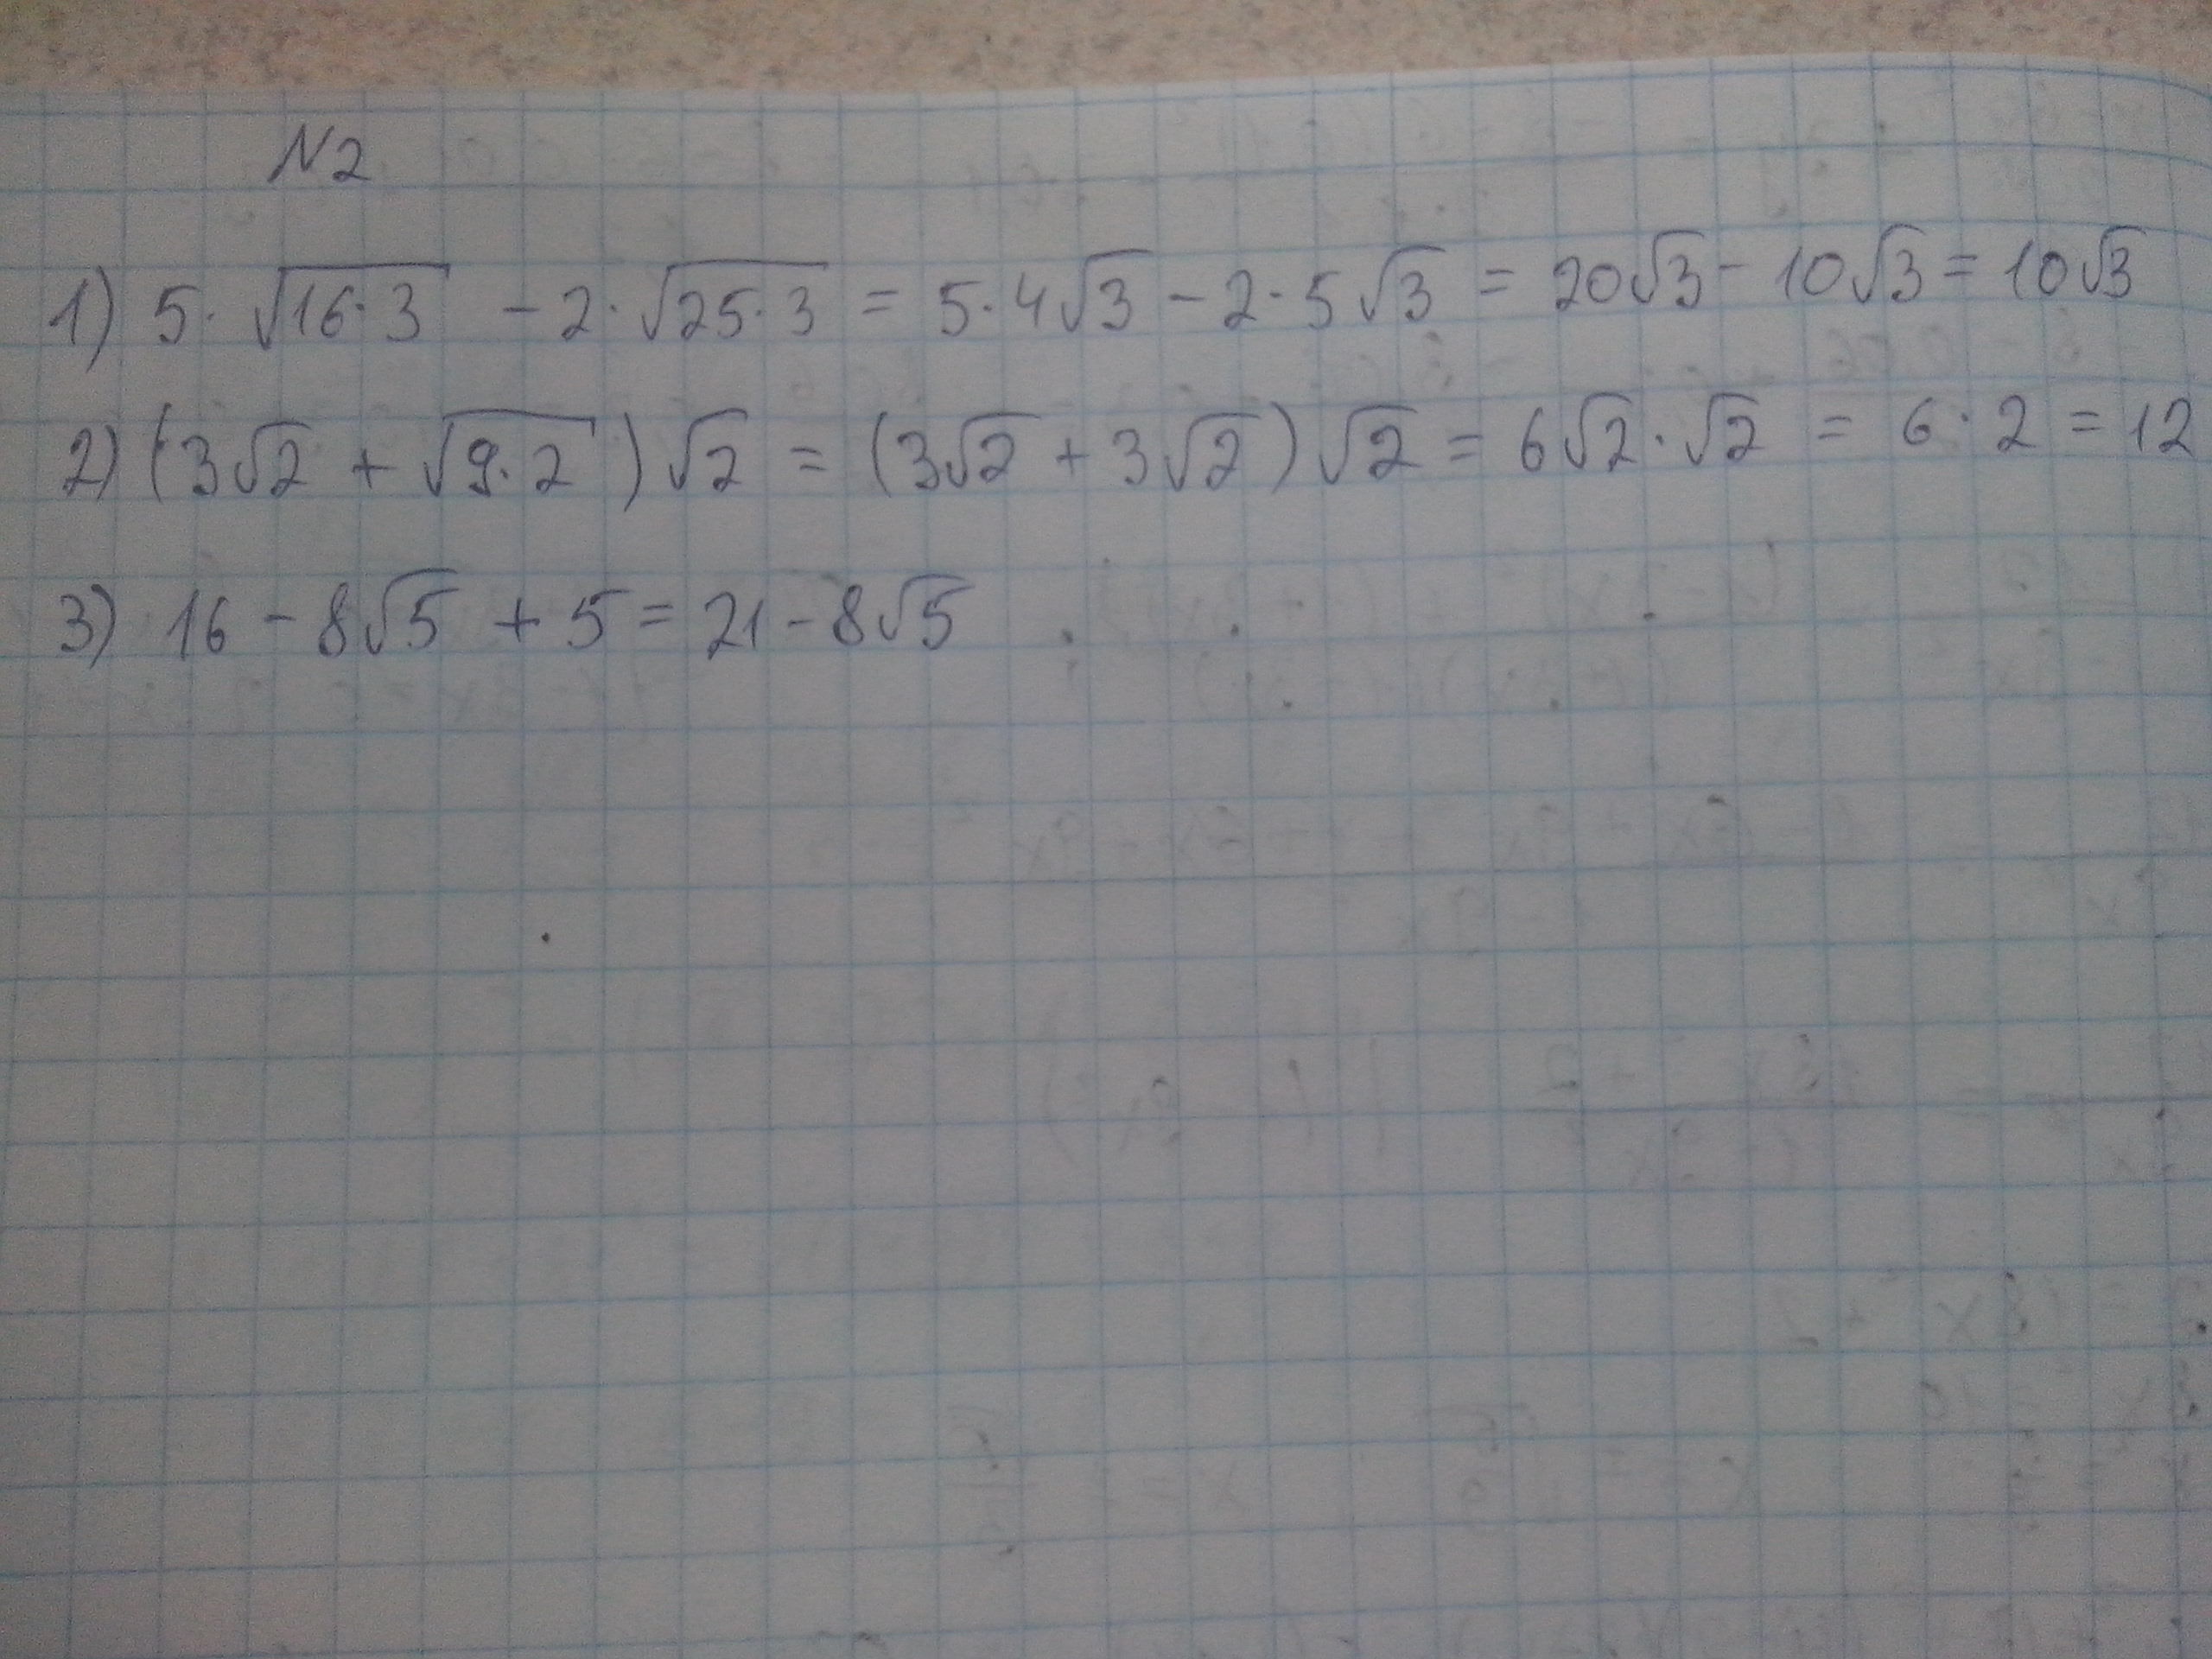 N2
1) 5·√16·3 - 2·√25·3 = 5·4√3 - 2·5√3 = 20√3 - 10√3 = 10√3
2) (3√2 + √9·2)√2 = (3√2 + 3√2)√2 = 6√2·√2 = 6·2 = 12
3) 16 - 8√5 + 5 = 21 - 8√5